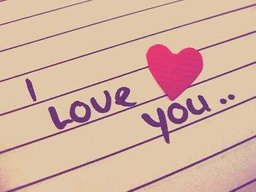 I
LOVE
YOU..